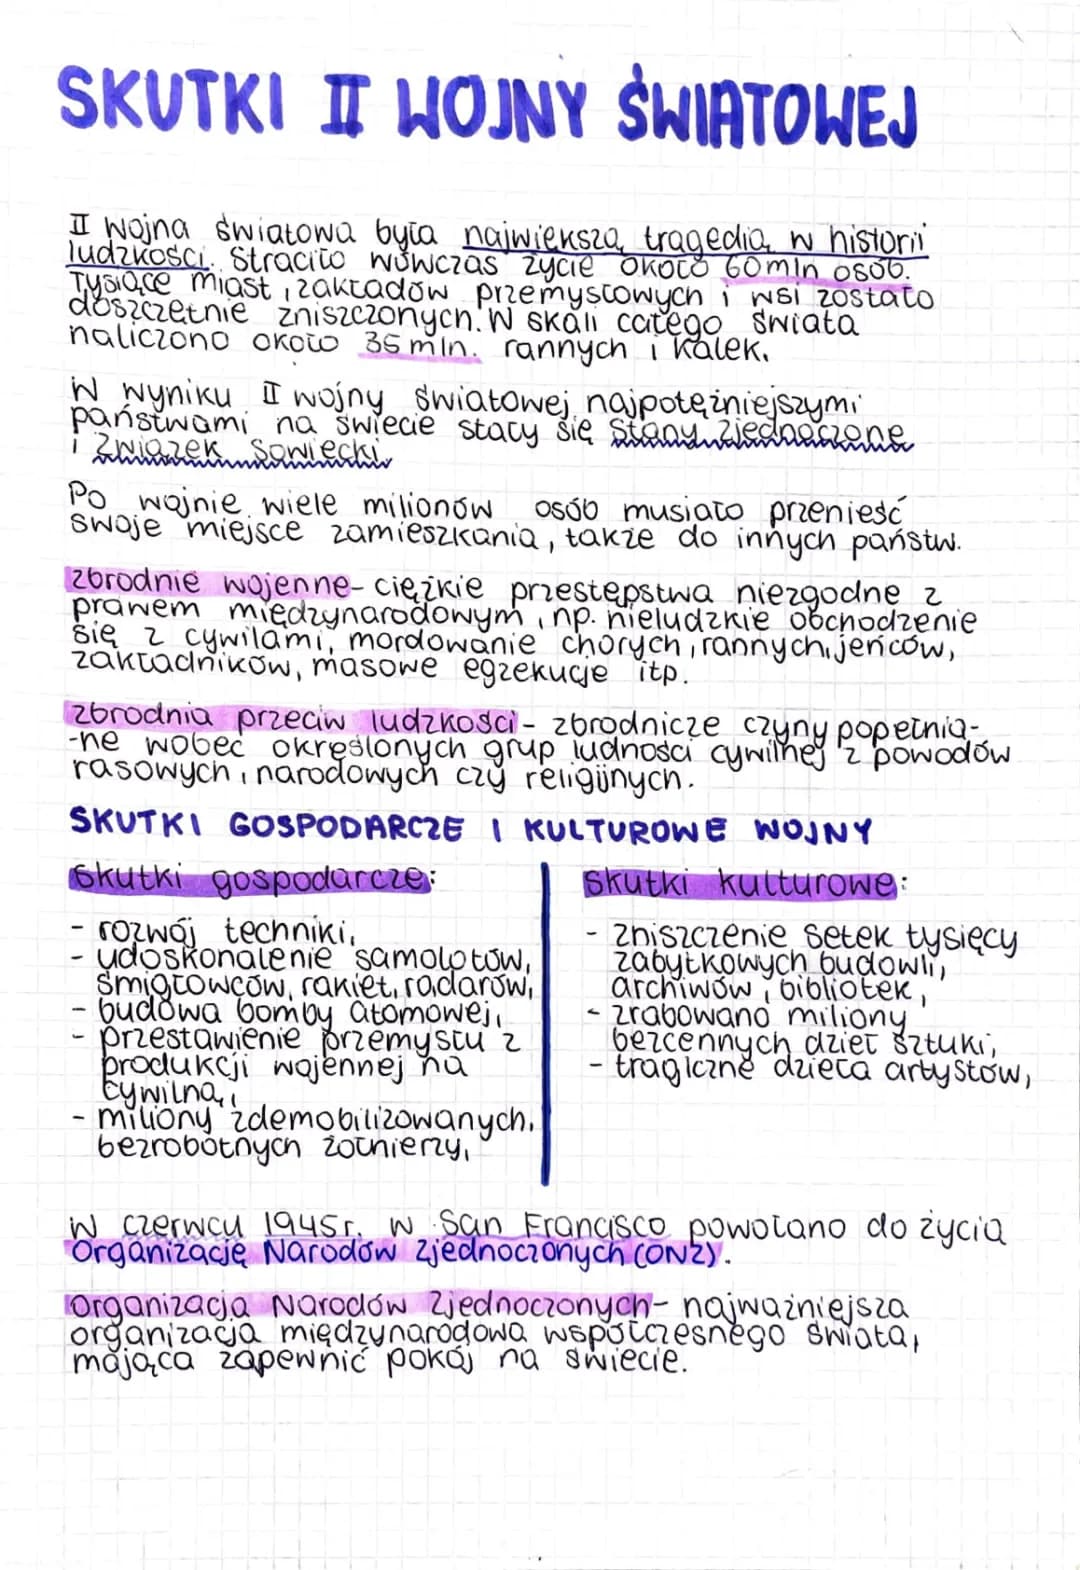 SKUTKI II WOJNY ŚWIATOWEJ
II wojna światowa była największą tragedią w historii
ludzkości. Straciło wówczas życie około 60 mln osób.
Tysiące miast, zakładów przemysłowych i wsi zostało
doszczętnie zniszczonych. W skali całego świata
naliczono około 35 mln. rannych i kalek.
W wyniku II wojny światowej najpotężniejszymi
państwami na świecie stały się Stany Zjednoczone
i Związek Sowiecki.
Po wojnie wiele milionów osób musiało przenieść
swoje miejsce zamieszkania, także do innych państw.
zbrodnie wojenne- ciężkie przestępstwa niezgodne z
prawem międzynarodowym, np. nieludzkie obchodzenie
się z cywilami, mordowanie chorych, rannych, jeńców,
zakładników, masowe egzekucje itp.
zbrodnia przeciw ludzkości- zbrodnicze czyny popełnia-
-ne wobec określonych grup ludności cywilnej z powodów
rasowych, narodowych czy religijnych.
SKUTKI GOSPODARCZE I KULTUROWE WOJNY
Skutki gospodarcze:
- rozwój techniki,
- udoskonalenie samolotów,
śmigłowców, rakiet, radarów,
- budowa bomby atomowej,
- przestawienie przemysłu z
produkcji wojennej na
cywilną,
- miliony zdemobilizowanych,
bezrobotnych żołnierzy,
Skutki kulturowe:
- zniszczenie setek tysięcy
zabytkowych budowli,
archiwów, bibliotek,
- zrabowano miliony
bezcennych dzieł sztuki,
- tragiczne dzieła artystów,
W czerwcu 1945r. w San Francisco powołano do życia
Organizację Narodów Zjednoczonych (ONZ).
Organizacja Narodów Zjednoczonych- najważniejsza
organizacja międzynarodowa współczesnego świata,
mająca zapewnić pokój na świecie.